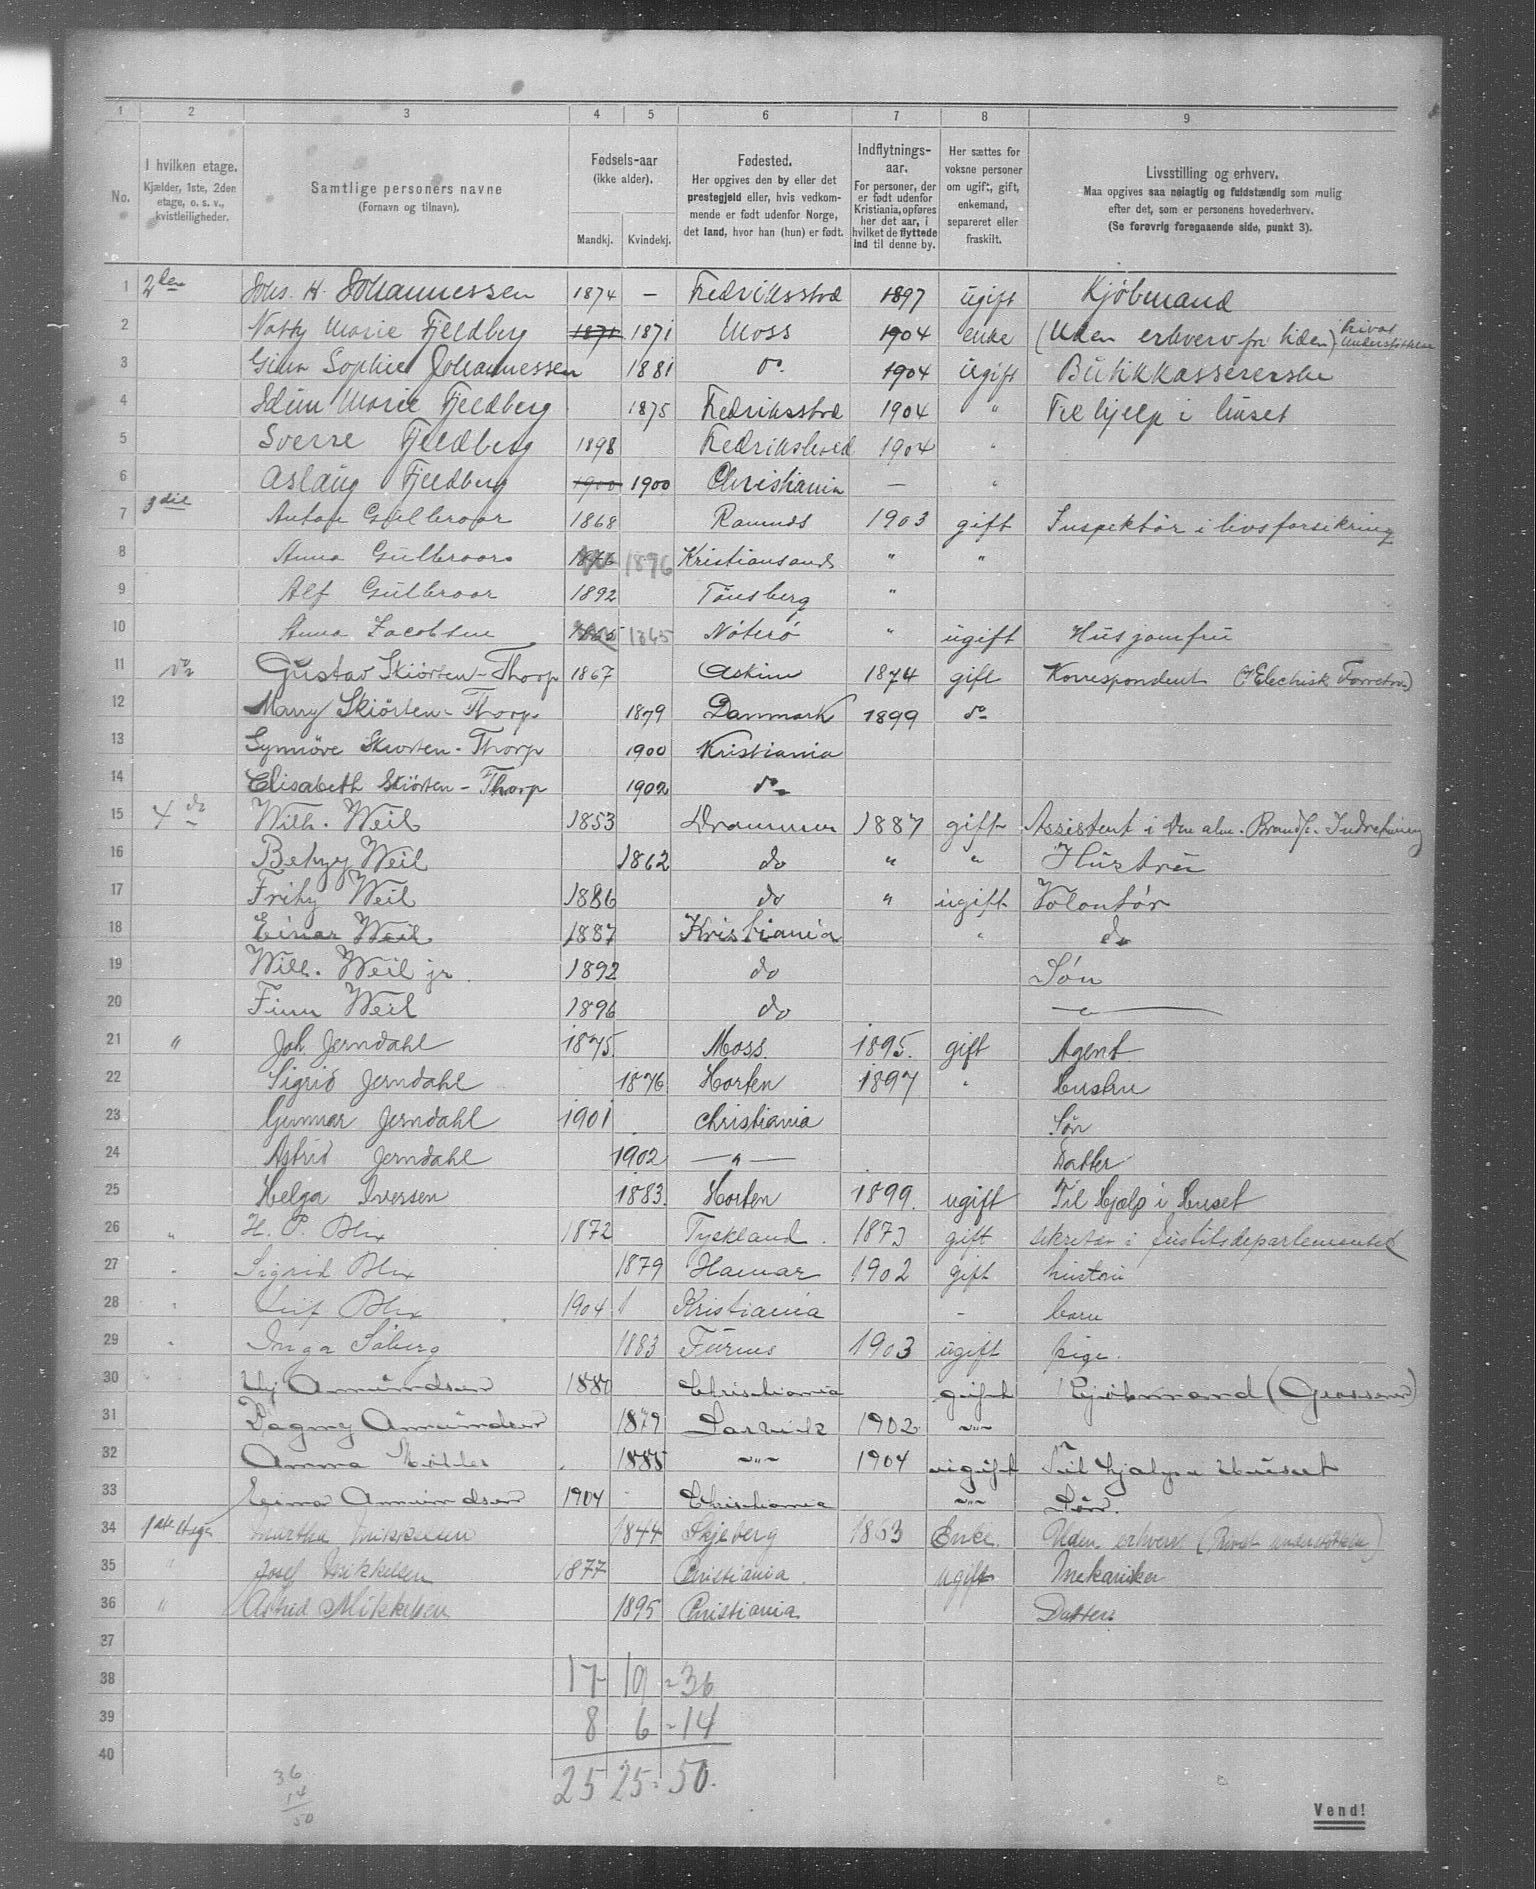 1 2 3 4 5 6 7 8 9
No.
I hvilken etage. Kjælder, 1ste, 2den etage, o. s. v., kvistleiligheder.
Samtlige personers navne (Fornavn og tilnavn).
Fødsels-aar (ikke alder). Mandkj. Kvindekj.
Fødested. Her opgives den by eller det prestegjeld eller, hvis vedkommende er født udenfor Norge, det land, hvor han (hun) er født.
Indflytnings-aar. For personer, der er født udenfor Kristiania, opføres her det aar, i hvilket de flyttede ind til denne by.
Her sættes for voksne personer om ugift, gift, enkemand, separeret eller fraskilt.
Livsstilling og erhverv. Maa opgives saa nøiagtig og fuldstændig som mulig efter det, som er personens hovederhverv. (Se forøvrig foregaaende side, punkt 3).
1 2den Johs. H. Johannessen 1874 — Fredriksstad 1897 ugift Kjøbmand
2 Marie Fjeldberg 1871 1871 Moss 1904 enke (Uden erhverv for tiden) Privat understøttelse
3 Gina Sophie Johannessen 1881 do 1904 ugift Butikkassererske
4 Marie Fjeldberg 1875 Fredriksstad 1904 " Til hjelp i huset
5 Sverre Fjeldberg 1898 Fredrikshald 1904 "
6 Aslaug Fjeldberg 1900 1900 Christiania — "
7 3die Anton Gulbroar 1868 Ramnes 1903 gift Inspektør i livsforsikring
8 Anna Gulbroar 1876 Kristiansand " "
9 Alf Gulbroar 1892 Tønsberg "
10 Anna Jacobsen 1865 Nøterø " ugift Husjomfru
11 do Gustav Skiörten-Thorp 1867 Askim 1874 gift Korrespondent (Electrisk Forretn)
12 Marry Skiörten-Thorp 1879 Danmark 1899 do
13 Synnöve Skiorten-Thorp 1900 Kristiania
14 Elisabeth Skiörten-Thorp 1902 do
15 4 do Wilh. Weil 1853 Drammen 1887 gift Assistent i Den alm. Brandf. Indretning
16 Betzy Weil 1862 do " " Hustru
17 Fritz Weil 1886 do " ugift Volontør
18 Einar Weil 1887 Kristiania " do
19 Wilh. Weil jr. 1892 do Søn
20 Finn Weil 1896 do — " —
21 " Joh. Jerndahl 1875 Moss 1895. gift Agent
22 Sigrid Jerndahl 1876 Horten 1897 " Hustru
23 Gunnar Jerndahl 1901 Christiania Søn
24 Astrid Jerndahl 1902 — " — Datter
25 Helga Iversen 1883. Horten 1899. ugift Til Hjælp i huset
26 " H. P. Blix 1872 Tyskland. 1873 gift sekretær i Justitsdepartementet
27 " Sigrid Blix 1879 Hamar 1902 gift hustru
28 " Leif Blix 1904 1 Kristiania - barn
29 " Inga Söberg 1883 Furnes 1903 ugift pige.
30 Hj Amundsen 1880 Christiania gift Kjøbmand (Grosserer)
31 Dagny Amundsen 1879 Larvik 1902 — " —
32 Anna Møller 1885 — " — 1904 ugift Til hjelp i Huset
33 Einar Amundsen 1904 Christiania — " — Søn
34 1ste Etage Martha Mikkelsen 1844 Skjeberg 1853 Enke Uden erhverv (Privat understøttelse)
35 " Josef Mikkelsen 1877 Christiania. ugift Mekaniker
36 " Astrid Mikkelsen 1895 Christiania Datter
37
38 17 19 = 36
39 8 6 = 14
40
25 25 = 50.
36
14
50
Vend!